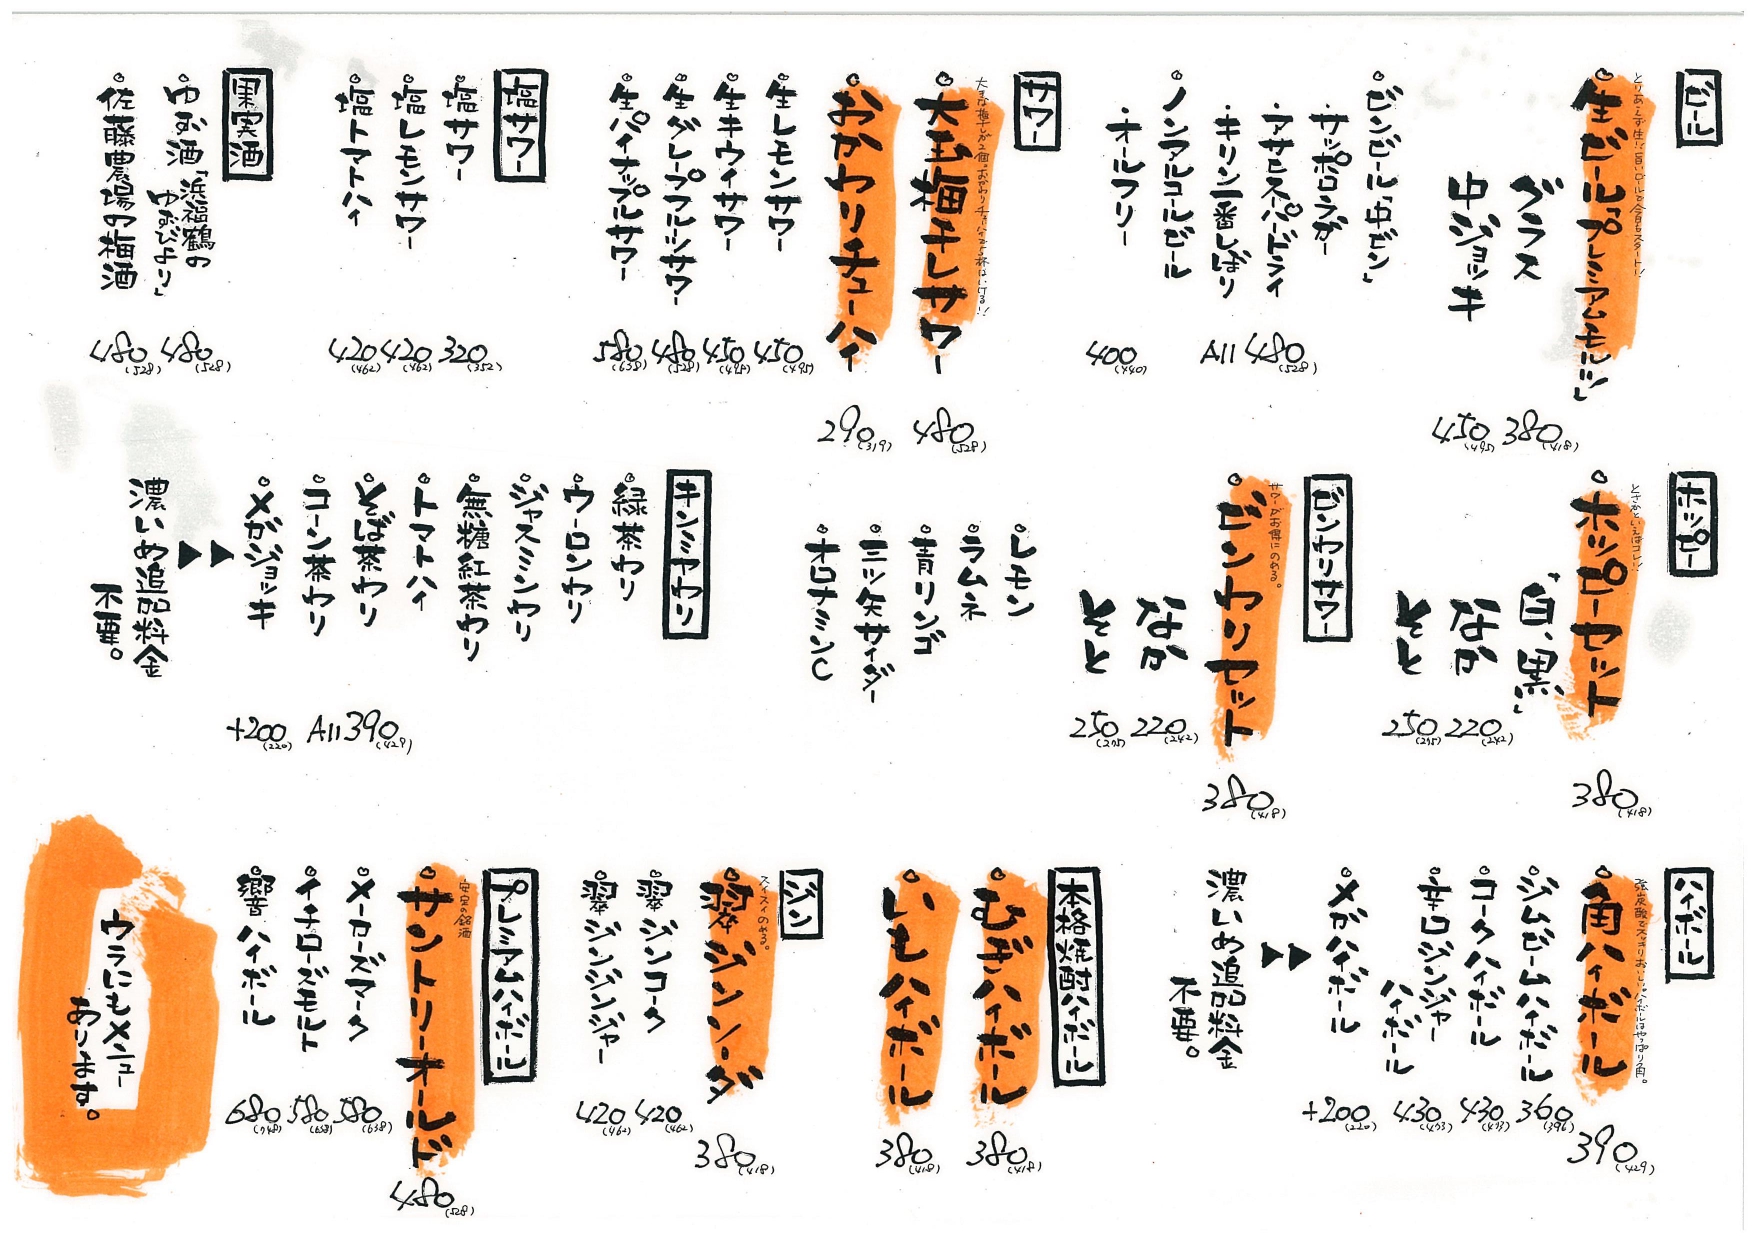 ビール
とりあえず生!!旨いビールで今日もスタート!!
生ビール「プレミアムモルツ」
グラス 380(418)
中ジョッキ 450(495)
ビンビール「中ビン」
・サッポロラガー
・アサヒスーパードライ
・キリン一番しぼり
All 480(528)
ノンアルコールビール
・オールフリー 400(440)
サワー
大きな梅干しが2個。おかわりチューハイで3杯はいける!!
大玉梅干しサワー 480(528)
おかわりチューハイ 290(319)
生レモンサワー 450(495)
生キウイサワー 450(495)
生グレープフルーツサワー 480(528)
生パイナップルサワー 580(638)
塩サワー
塩サワー 320(352)
塩レモンサワー 420(462)
塩トマトハイ 420(462)
果実酒
ゆず酒「浜福鶴の
ゆずびより」 480(528)
佐藤農場の梅酒 480(528)
ホッピー
とさかといえばコレ!!
ホッピーセット 380(418)
「白、黒」
なか 220(242)
そと 250(275)
ビンワリサワー
サワーがお得にのめる。
ビンワリセット 380(418)
なか 220(242)
そと 250(275)
レモン
ラムネ
青リンゴ
三ツ矢サイダー
オロナミンC
キンミヤワリ
緑茶ワリ
ウーロンワリ
ジャスミンワリ
無糖紅茶ワリ
トマトハイ
そば茶ワリ
コーン茶ワリ
All 390(429)
メガジョッキ +200(220)
▶▶
濃いめ追加料金
不要。
ハイボール
強炭酸でスッキリおいしい。ハイボールはやっぱり角。
角ハイボール 390(429)
ジムビームハイボール 360(396)
コークハイボール 430(473)
辛口ジンジャー
ハイボール 430(473)
メガハイボール +200(220)
▶▶
濃いめ追加料金
不要。
本格焼酎ハイボール
むぎハイボール 380(418)
いもハイボール 380(418)
ジン
スイスイのめる。
翠ジンソーダ 380(418)
翠ジンコーク 420(462)
翠ジンジンジャー 420(462)
プレミアムハイボール
安定の銘酒
サントリーオールド 480(528)
メーカーズマーク 580(638)
イチローズモルト 580(638)
響ハイボール 680(748)
ウラにもメニュー
あります。